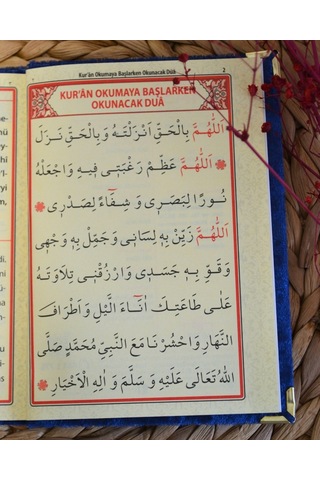 Kur'ân Okumaya Başlarken Okunacak Duâ 2
KUR'ÂN OKUMAYA BAŞLARKEN
OKUNACAK DUÂ
اَللّٰهُمَّ بِالْحَقِّ اَنْزَلْتَهُ وَبِالْحَقِّ نَزَلَ
اَللّٰهُمَّ عَظِّمْ رَغْبَتِى فِيهِ وَاجْعَلْهُ
نُورًا لِبَصَرِى وَ شِفَٓاءً لِصَدْرِى
اَللّٰهُمَّ زَيِّنْ بِهِ لِسَانِى وَ جَمِّلْ بِهِ وَجْهِى
وَ قَوِّ بِهِ جَسَدِى وَارْزُقْنِى تِلَاوَتَهُ
عَلٰى طَاعَتِكَ اٰنَٓاءَ الَّيْلِ وَ اَطْرَافَ
النَّهَارِ وَاحْشُرْنَا مَعَ النَّبِيِّ مُحَمَّدٍ صَلَّى
اللّٰهُ تَعَالٰى عَلَيْهِ وَ سَلَّمَ وَ اٰلِهِ الْاَخْيَارِ